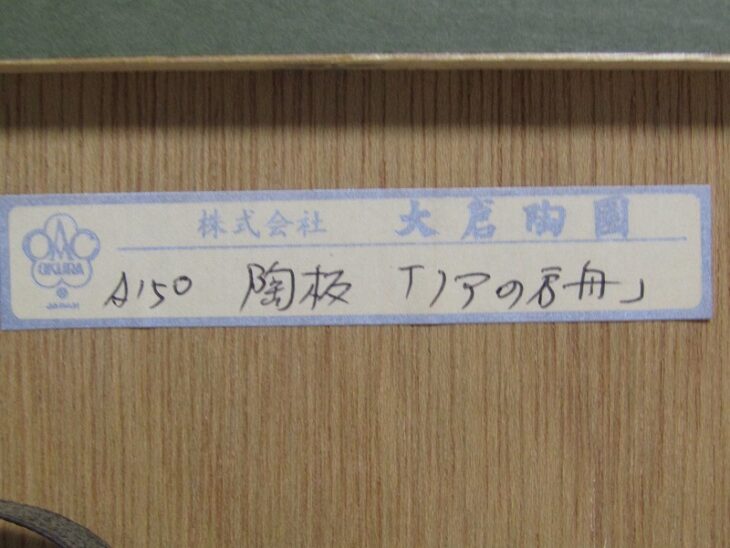 株式会社 大倉陶園
OKURA
JAPAN
A150 陶板 「ノアの方舟」